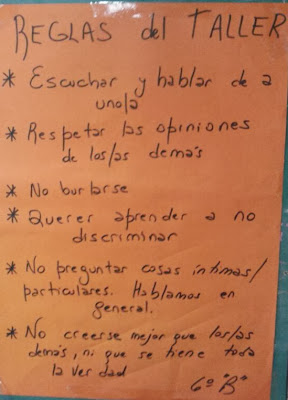 REGLAS del TALLER
* Escuchar y hablar de a
uno/a
* Respetar las opiniones
de los/as demás
* No burlarse
* Querer aprender a no
discriminar
* No preguntar cosas íntimas/
particulares. Hablamos en
general.
* No creerse mejor que los/as
demás, ni que se tiene toda
la verdad
6º "B"